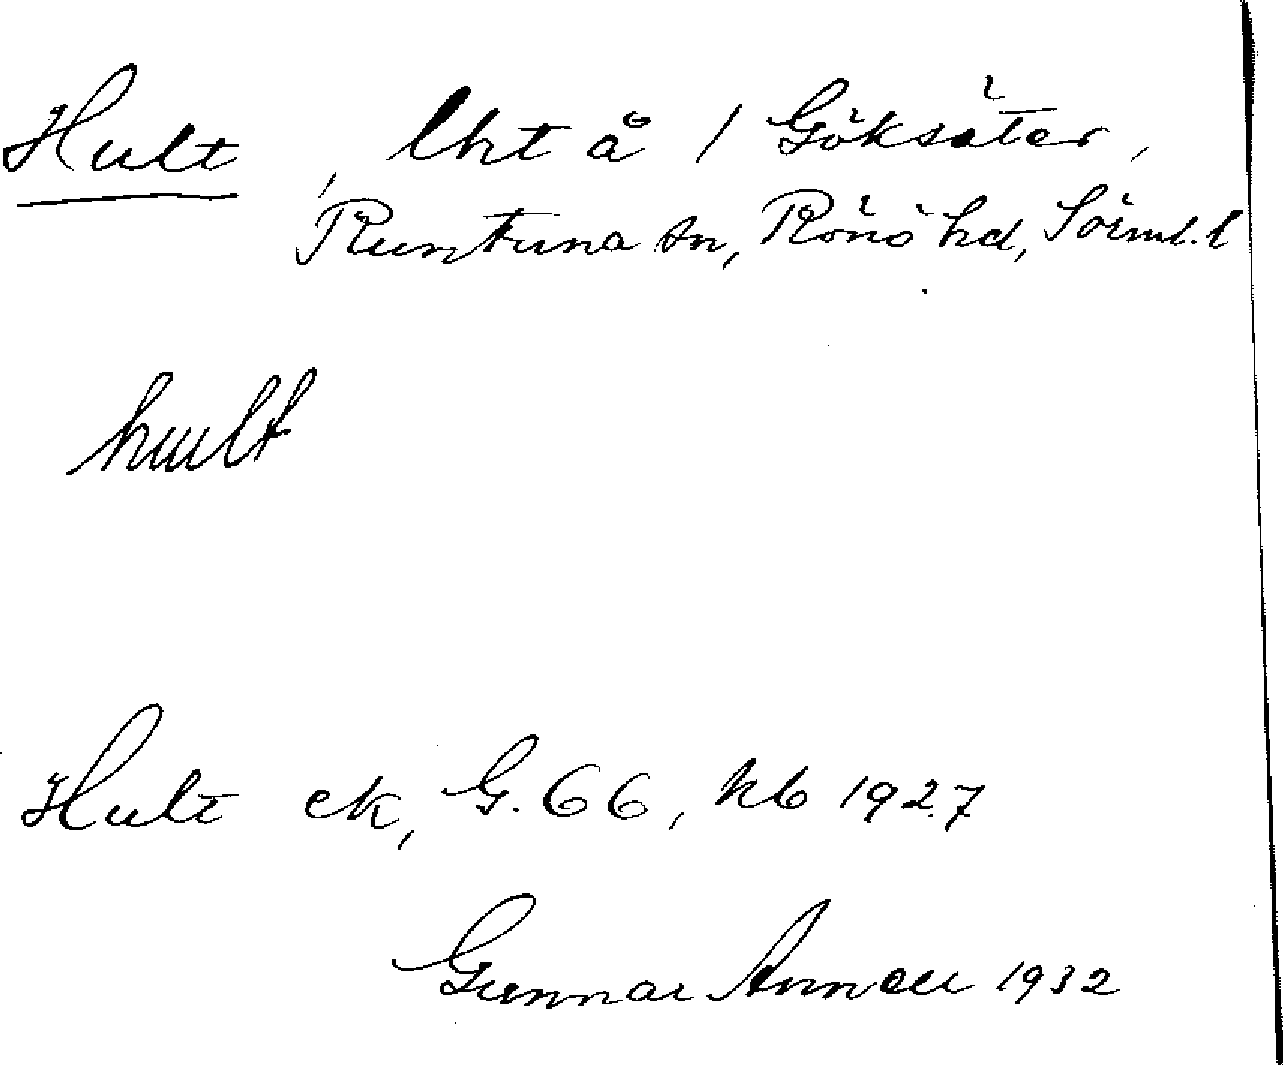 Hult, lht å / Göksäter,
Runtuna sn, Rönö hd, Sörml. l
hult
Hult ek, G. 66, kb 1927
Gunnar Annell 1932